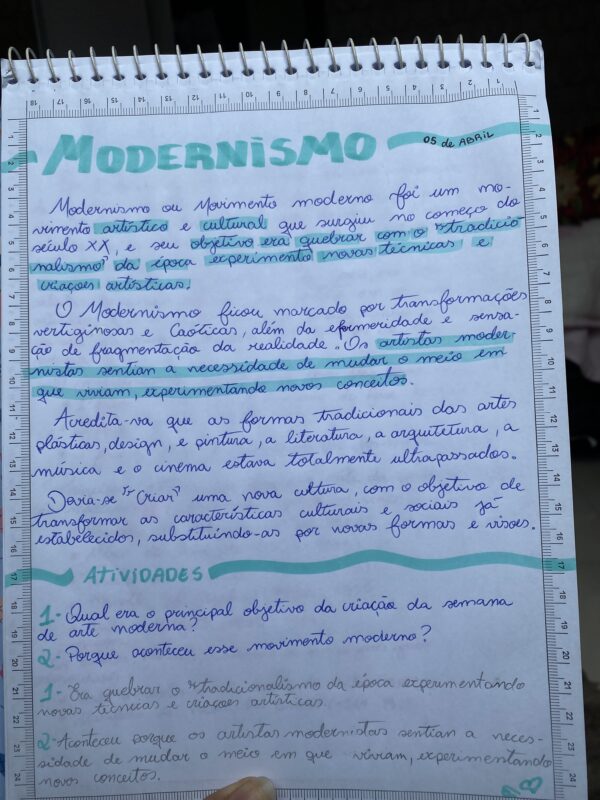 MODERNISMO
05 de ABRIL
Modernismo ou Movimento moderno foi um mo-
vimento artístico e cultural que surgiu no começo do
século XX, e seu objetivo era quebrar com o "tradicio
nalismo" da época experimento novas técnicas e
criações artísticas.
O Modernismo ficou marcado por transformações
vertiginosas e Caóticas, além da efemeridade e sensa-
ção de fragmentação da realidade. Os artistas moder-
nistas sentian a necessidade de mudar o meio em
que viviam, experimentando novos conceitos.
Acredita-va que as formas tradicionais das artes
plásticas, design, e pintura, a literatura, a arquitetura, a
música e o cinema estava totalmente ultrapassados.
Devia-se "Criar" uma nova cultura, com o objetivo de
transformar as características culturais e sociais já
estabelecidos, substituindo-as por novas formas e visoes.
ATIVIDADES
1- Qual era o principal objetivo da criação da semana
de arte moderna?
2- Porque aconteceu esse movimento moderno?
1- Era quebrar o "tradicionalismo da época experimentando
novas técnicas e criaçoes artísticas
2- Aconteceu porque os artistas modernistas sentian a neces-
sidade de mudar o meio em que viviam, experimentando
novos conceitos.